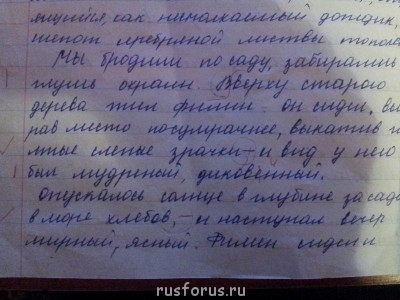 ящийся, как несмолкаемый дождик,
шепот серебряной листвы топол
Мы бродили по саду, забирались
глушь окраин. Вверху старого
дерева жил филин – он сидел, вы
рав место посумрачнее, выкатив
лтые слепые зрачки – и вид у него
был мудреный, диковенный.
Опускалось солнце в глубине за садом
в море хлебов, – и наступал вечер
мирный, ясный. Филин сидел и
rusforus.ru